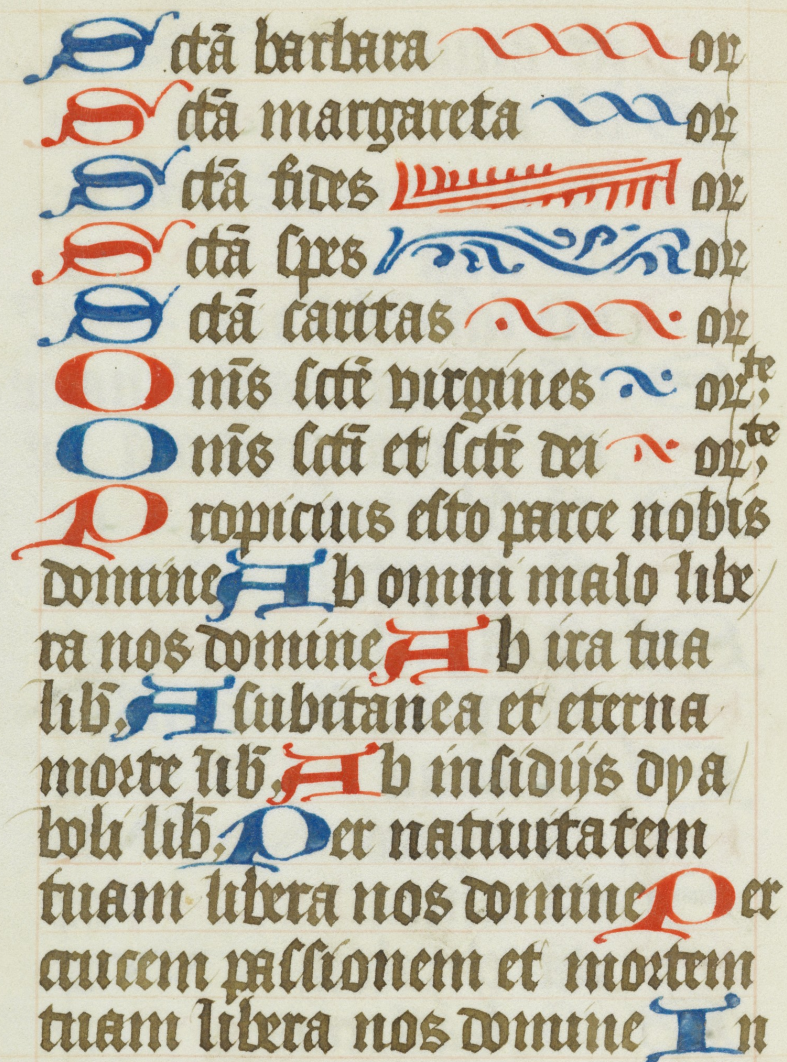 Sctā barbara or
Sctā margareta or
Sctā fides or
Sctā spes or
Sctā caritas or
Om̄s sctē virgines orte,
Om̄s sctī et sctē dei orte,
Propicius esto parce nobis
domine Ab omni malo libe
ra nos domine Ab ira tua
lib̄, A subitanea et eterna
morte lib̄, Ab insidijs dya
boli lib̄, Per natiuitatem
tuam libera nos domine Per
crucem passionem et mortem
tuam libera nos domine In